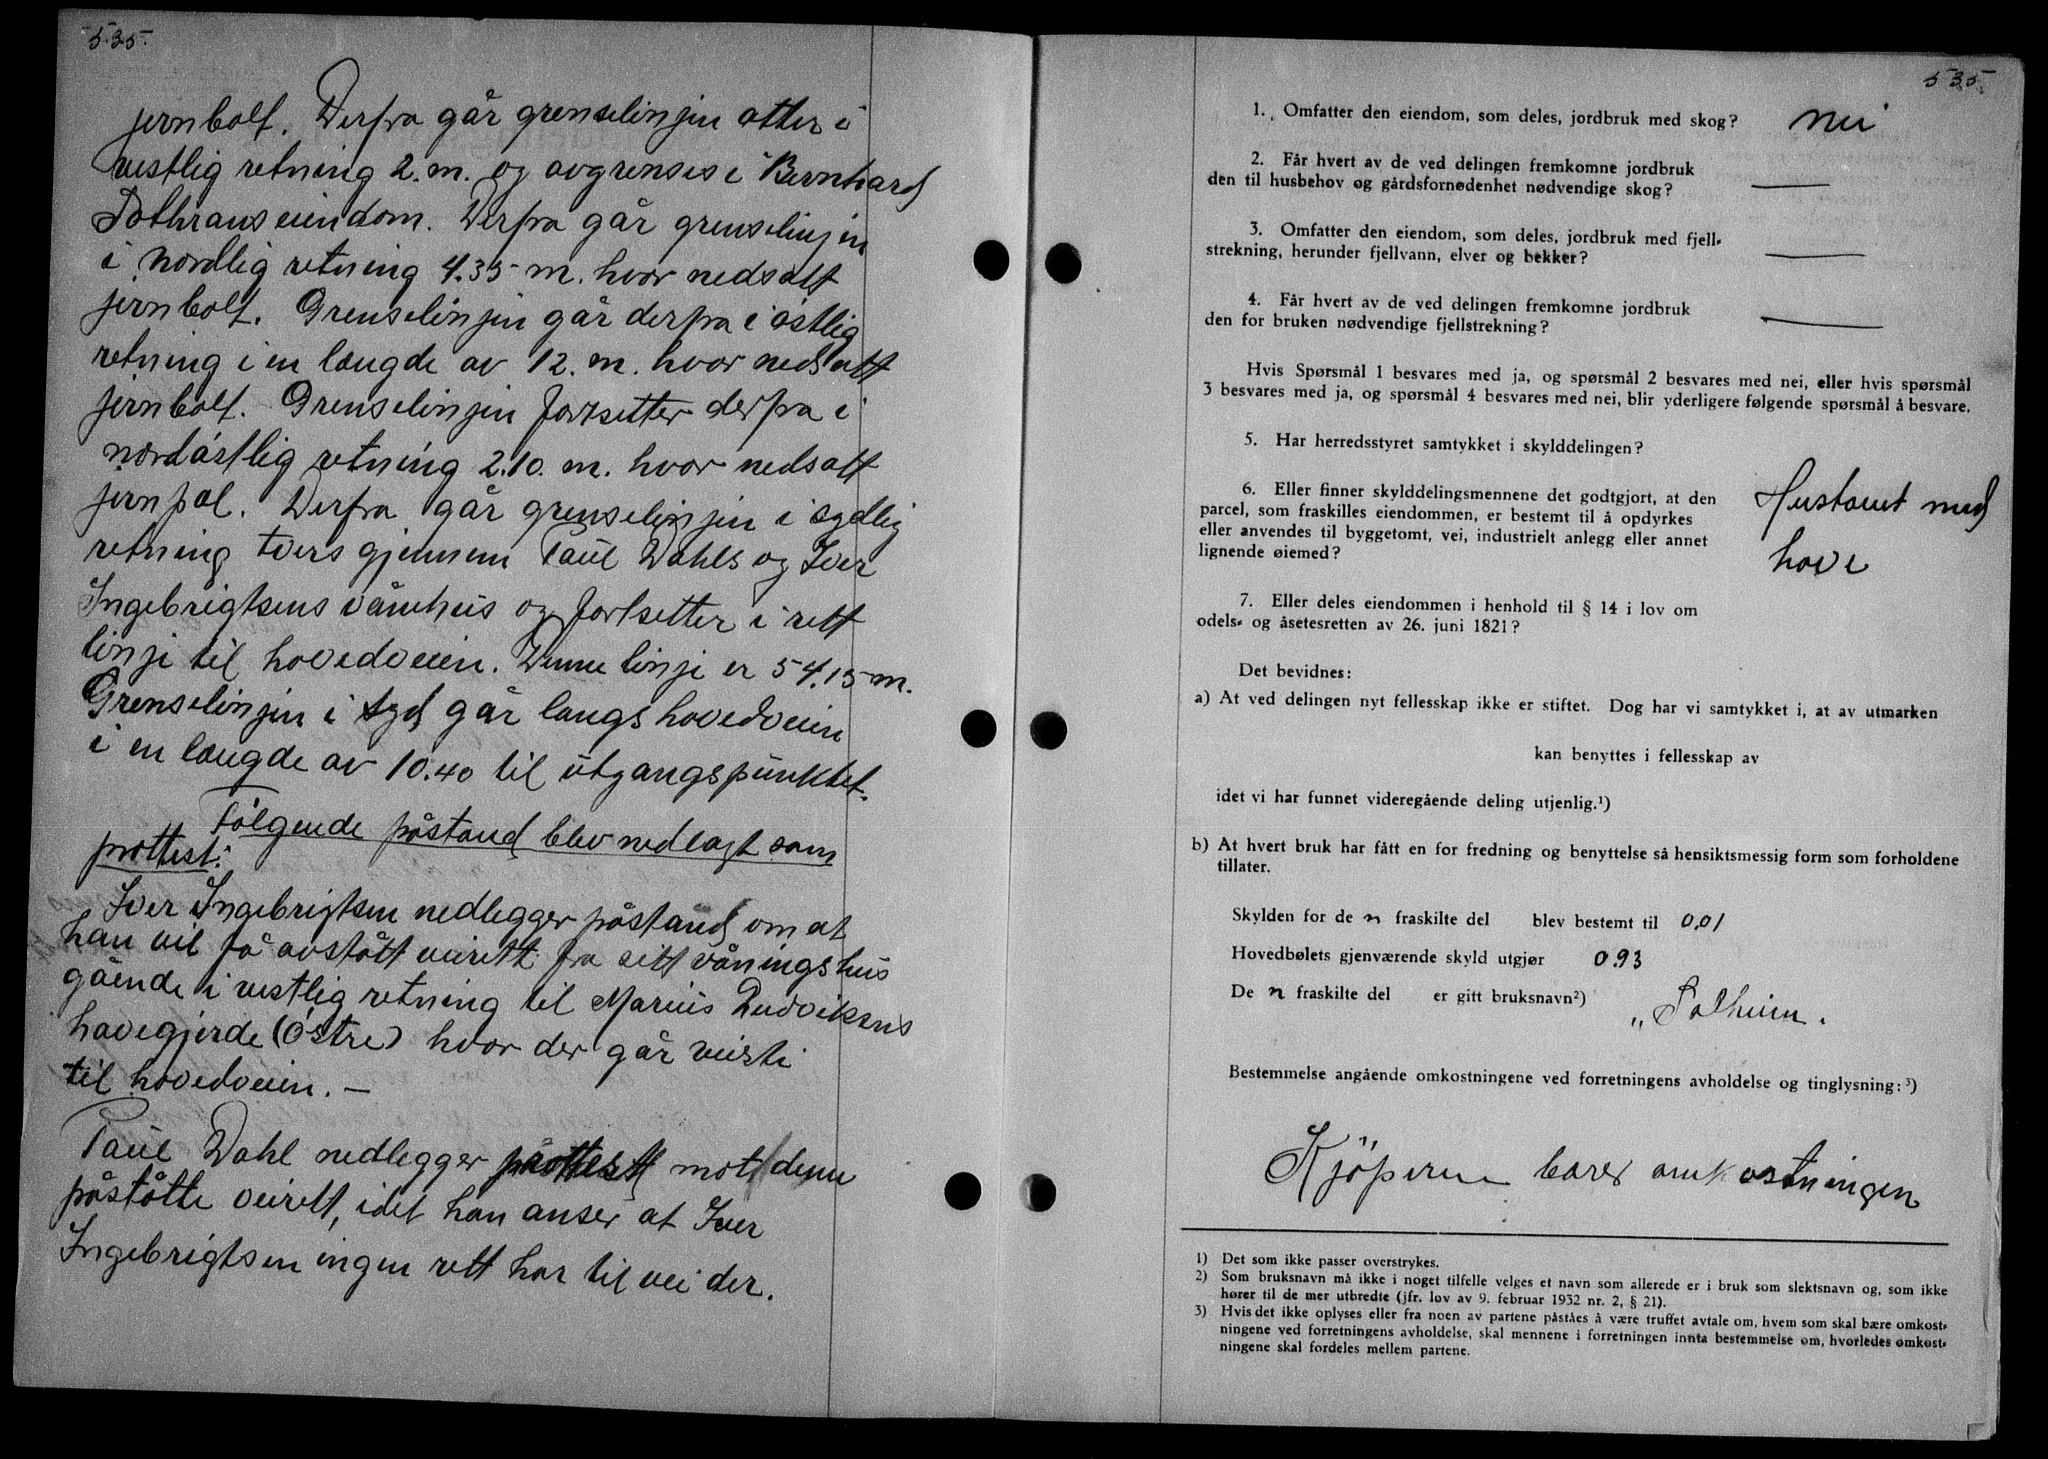 535.
jernbolt. Derfra går grenselinjen atter i
vestlig retning 2.m. og avgrenses i Bernhard
eiendom. Derfra går grenselinjen
i nordlig retning 4.35 m. hvor nedsatt
jernbolt. Grenselinjen går derfra i östlig
retning i en længde av 12.m. hvor nedsatt
jernbolt. Grenselinjen fortsetter derfra i
nordöstlig retning 2.10.m. hvor nedsatt
jernpæl. Derfra går grenselinjen i sydlig
retning tvers gjennem Paul Dahls og Iver
Ingebrigtsens vånehus og fortsetter i rett
linje til hovedveien. Denne linje er 54.15 m.
Grenselinjen i syd går langs hovedveien
i en længde av 10.40 til utgangspunktet.
Fölgende påstand blev nedlagt som
prottest:
Iver Ingebrigtsen nedlegger påstand om at
han vil få avstått veirett fra sitt våningshus
gående i vestlig retning til Marius Ludviksens
havegjerde (Östre) hvor der går veisti
til hovedveien. —
Paul Dahl nedlegger prottest mot denne
påståtte veirett, idet han anser at Iver
Ingebrigtsen ingen rett har til vei der.
535.
1. Omfatter den eiendom, som deles, jordbruk med skog? nei
2. Får hvert av de ved delingen fremkomne jordbruk
den til husbehov og gårdsfornødenhet nødvendige skog? —
3. Omfatter den eiendom, som deles, jordbruk med fjell-
strekning, herunder fjellvann, elver og bekker? —
4. Får hvert av de ved delingen fremkomne jordbruk
den for bruken nødvendige fjellstrekning? —
Hvis Spørsmål 1 besvares med ja, og spørsmål 2 besvares med nei, eller hvis spørsmål
3 besvares med ja, og spørsmål 4 besvares med nei, blir yderligere følgende spørsmål å besvare.
5. Har herredsstyret samtykket i skylddelingen?
6. Eller finner skylddelingsmennene det godtgjort, at den
parcel, som fraskilles eiendommen, er bestemt til å opdyrkes
eller anvendes til byggetomt, vei, industrielt anlegg eller annet
lignende øiemed?
Hustomt med
have
7. Eller deles eiendommen i henhold til § 14 i lov om
odels- og åsetesretten av 26. juni 1821?
Det bevidnes:
a) At ved delingen nyt fellesskap ikke er stiftet. Dog har vi samtykket i, at av utmarken
kan benyttes i fellesskap av
idet vi har funnet videregående deling utjenlig.¹)
b) At hvert bruk har fått en for fredning og benyttelse så hensiktsmessig form som forholdene
tillater.
Skylden for de n fraskilte del blev bestemt til 0,01
Hovedbølets gjenværende skyld utgjør 0.93
De n fraskilte del er gitt bruksnavn²)
„Solheim.
Bestemmelse angående omkostningene ved forretningens avholdelse og tinglysning:³)
Kjöperen bærer omkostningen
1) Det som ikke passer overstrykes.
2) Som bruksnavn må ikke i noget tilfelle velges et navn som allerede er i bruk som slektsnavn og, som ikke
hører til de mer utbredte (jfr. lov av 9. februar 1932 nr. 2, § 21).
3) Hvis det ikke oplyses eller fra noen av partene påståes å være truffet avtale om, hvem som skal bære omkost-
ningene ved forretningens avholdelse, skal mennene i forretningen innta bestemmelse om, hvorledes omkost-
ningene skal fordeles mellem partene.